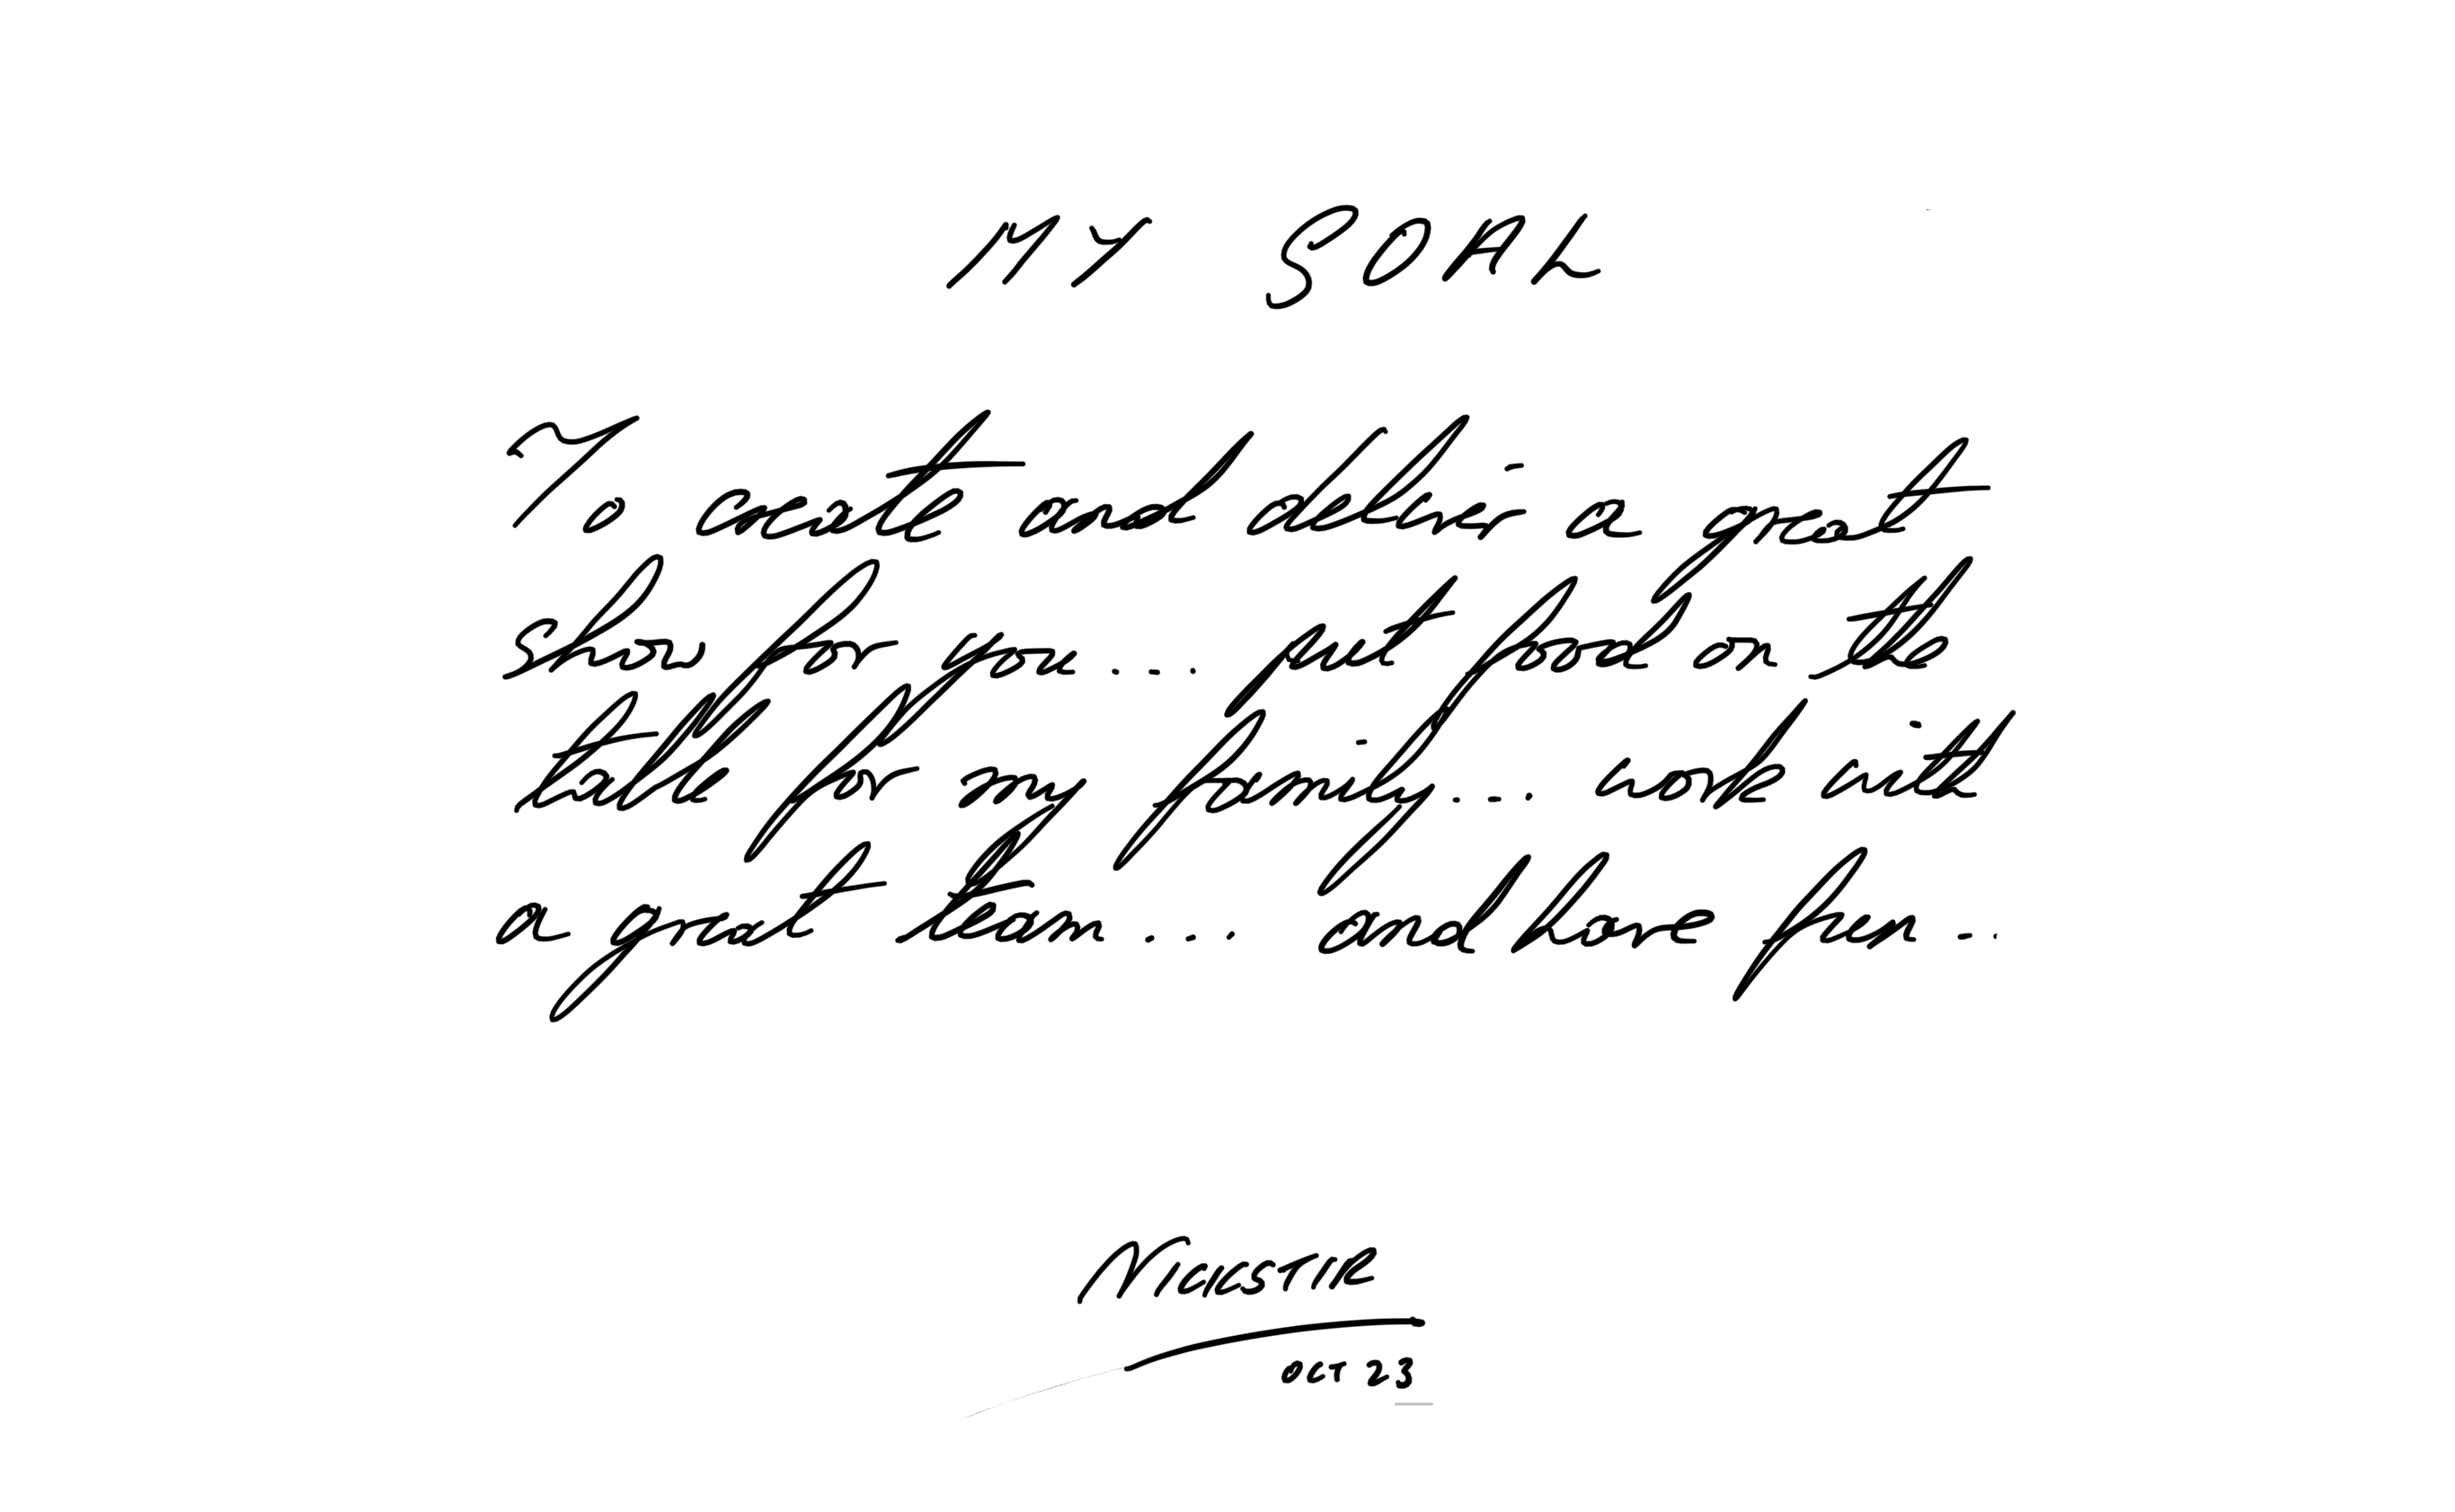 MY GOAL
To create and deliver a great
show for you... put food on the
table for my family... work with
a great team... and have fun...
NICKSTER
OCT 23